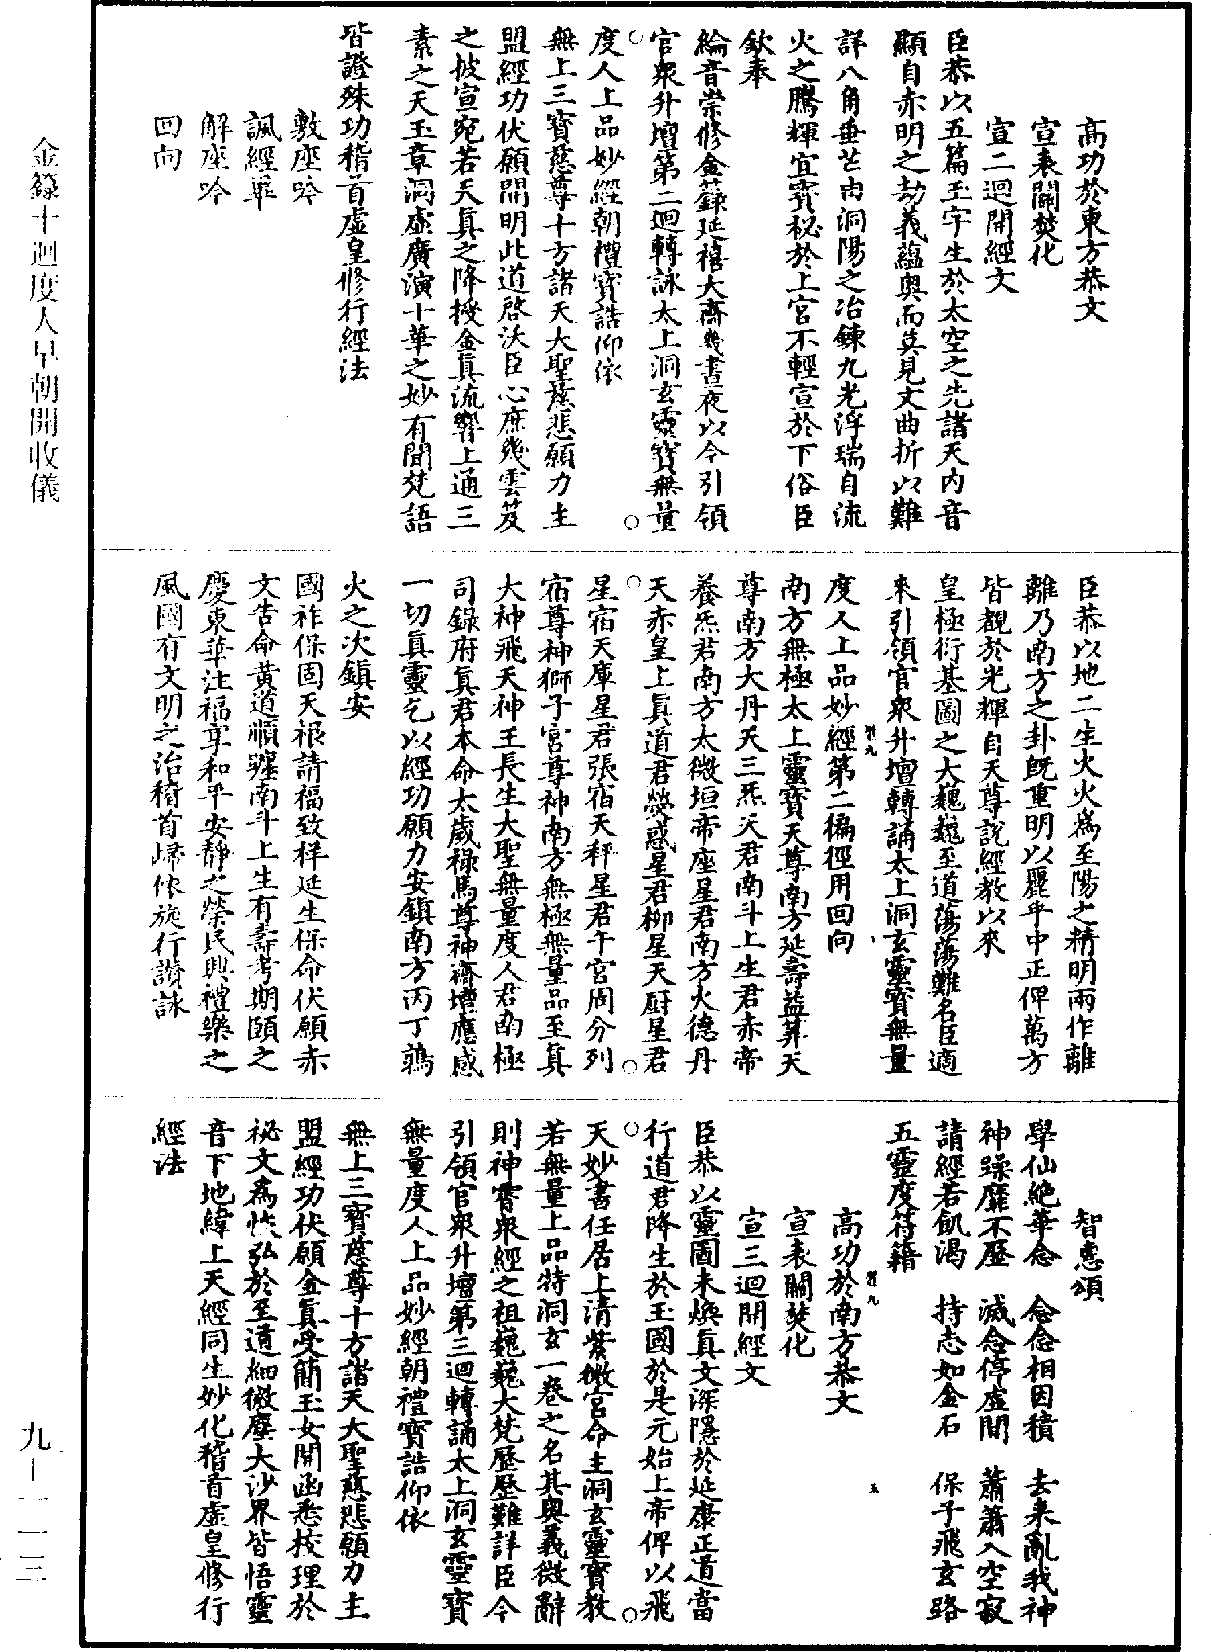 高功於東方恭文
宣表關焚化
宣二迴開經文
臣恭以五篇玉字生於太空之先諸天內音
顯自赤明之劫義蘊奧而莫見文曲折以難
詳八角垂芒由洞陽之冶鍊九光浮瑞自流
火之騰輝宜寶秘於上宮不輕宣於下俗臣
欽奉
綸音崇修金籙延禧大齋幾晝夜以今引領
官衆升壇第二迴轉詠太上洞玄靈寶無量
度人上品妙經朝禮寶誥仰依
無上三寶慈尊十方諸天大聖慈悲願力主
盟經功伏願開明此道啓沃臣心庶幾雲笈
之披宣宛若天真之降授金真流響上通三
素之天玉章洞虛廣演十華之妙有聞梵語
皆證殊功稽首虛皇修行經法
敷座吟
諷經畢
解座吟
回向
臣恭以地二生火火爲至陽之精明兩作離
離乃南方之卦既重明以麗乎中正俾萬方
皆覩於光輝自天尊說經教以來
皇極衍基圖之大巍巍至道蕩蕩難名臣適
來引領官衆升壇轉誦太上洞玄靈寶無量
度人上品妙經第二徧徑用回向
南方無極太上靈寶天尊南方延壽益筭天
尊南方大丹天三炁天君南斗上生君赤帝
養炁君南方太微垣帝座星君南方火德丹
天赤皇上真道君熒惑星君柳星天厨星君
星宿天庫星君張宿天秤星君午宮周分列
宿尊神獅子宮尊神南方無極無量品至真
大神飛天神王長生大聖無量度人君南極
司錄府真君本命太歲祿馬尊神齋壇應感
一切真靈乞以經功願力安鎮南方丙丁鶉
火之次鎮安
國祚保固天根請福致祥延生保命伏願赤
文告命黃道順躔南斗上生有壽考期頤之
慶東華注福享和平安靜之榮民興禮樂之
風國有文明之治稽首歸依旋行讚詠
智慧頌
學仙絶華念　念念相因積　去來亂我神
神躁靡不歷　滅念停虛閒　蕭蕭入空寂
請經若飢渴　持志如金石　保子飛玄路
五靈度符籍
高功於南方恭文
宣表關焚化
宣三迴開經文
臣恭以靈圖未煥真文深隱於延康正道當
行道君降生於玉國於是元始上帝俾以飛
天妙書任居上清紫微宮命主洞玄靈寶教
若無量上品特洞玄一卷之名其奧義微辭
則神霄衆經之祖巍巍大梵歷歷難詳臣今
引領官衆升壇第三迴轉誦太上洞玄靈寶
無量度人上品妙經朝禮寶誥仰依
無上三寶慈尊十方諸天大聖慈悲願力主
盟經功伏願金真受簡玉女開函悉校理於
祕文爲恢弘於至道細微塵大沙界皆悟靈
音下地緯上天經同生妙化稽首虛皇修行
經法
金籙十迴度人早朝開收儀
九－一一三